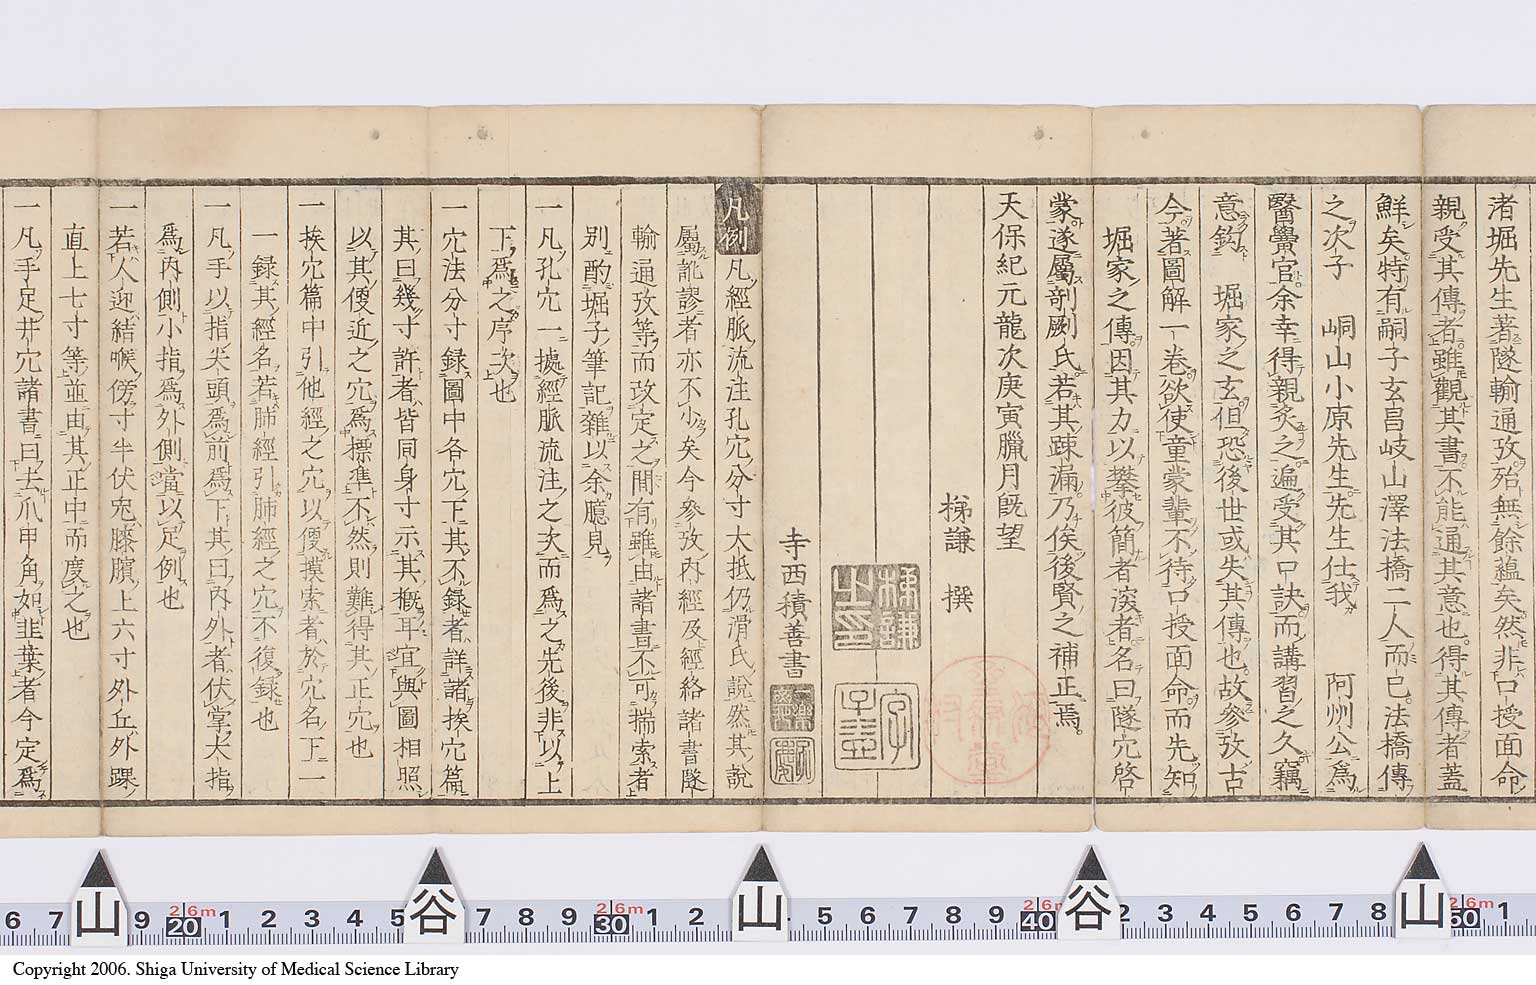 渚堀先生著隧輸通攷殆無餘蘊矣然非口授面命
親受其傳者雖觀其書不能通其意也得其傳者蓋
鮮矣特有嗣子玄昌岐山澤法橋二人而已法橋傳
之次子 峒山小原先生先生仕我 阿州公爲
醫黌官余幸得親炙之遍受其口訣而講習之久竊
意鈎 堀家之玄但恐後世或失其傳也故參攷古
今著圖解一卷欲使童蒙輩不待口授面命而先知
堀家之傳因其力以攀彼簡者湥者名曰隧穴啓
蒙遂屬剞劂氏若其疎漏乃俟後賢之補正焉
天保紀元龍次庚寅臘月旣望
梯謙 撰
梯謙之印
寺西積善書
凡例 凡經脈流注孔穴分寸大抵仍滑氏說然其說
屬訛謬者亦不少矣今參攷內經及經絡諸書隧
輸通攷等而改定之間有雖由諸書不可揣索者
別酌堀子筆記雜以余臆見
一凡孔穴一據經脈流注之次而爲之先後非以上
下爲之序次也
一穴法分寸録圖中各穴下其不録者詳諸揆穴篇
其曰幾寸許者皆同身寸示其概耳宜與圖相照
以其便近之穴爲標準不然則難得其正穴也
一揆穴篇中引他經之穴以便摸索者於穴名下一
一録其經名若肺經引肺經之穴不復録也
一凡手以指尖頭爲前爲下其曰內外者伏掌大指
爲內側小指爲外側當以足例也
一若人迎結喉傍寸半伏兔膝臏上六寸外丘外踝
直上七寸等並由其正中而度之也
一凡手足井穴諸書曰去爪甲角如韭葉者今定爲
6 7 9 20 1 2 3 4 5 7 8 9 30 1 2 5 6 7 8 9 40 2 3 4 5 6 7 8 50 1
26m 26m 26m 26m
山 谷 山 谷 山
Copyright 2006. Shiga University of Medical Science Library